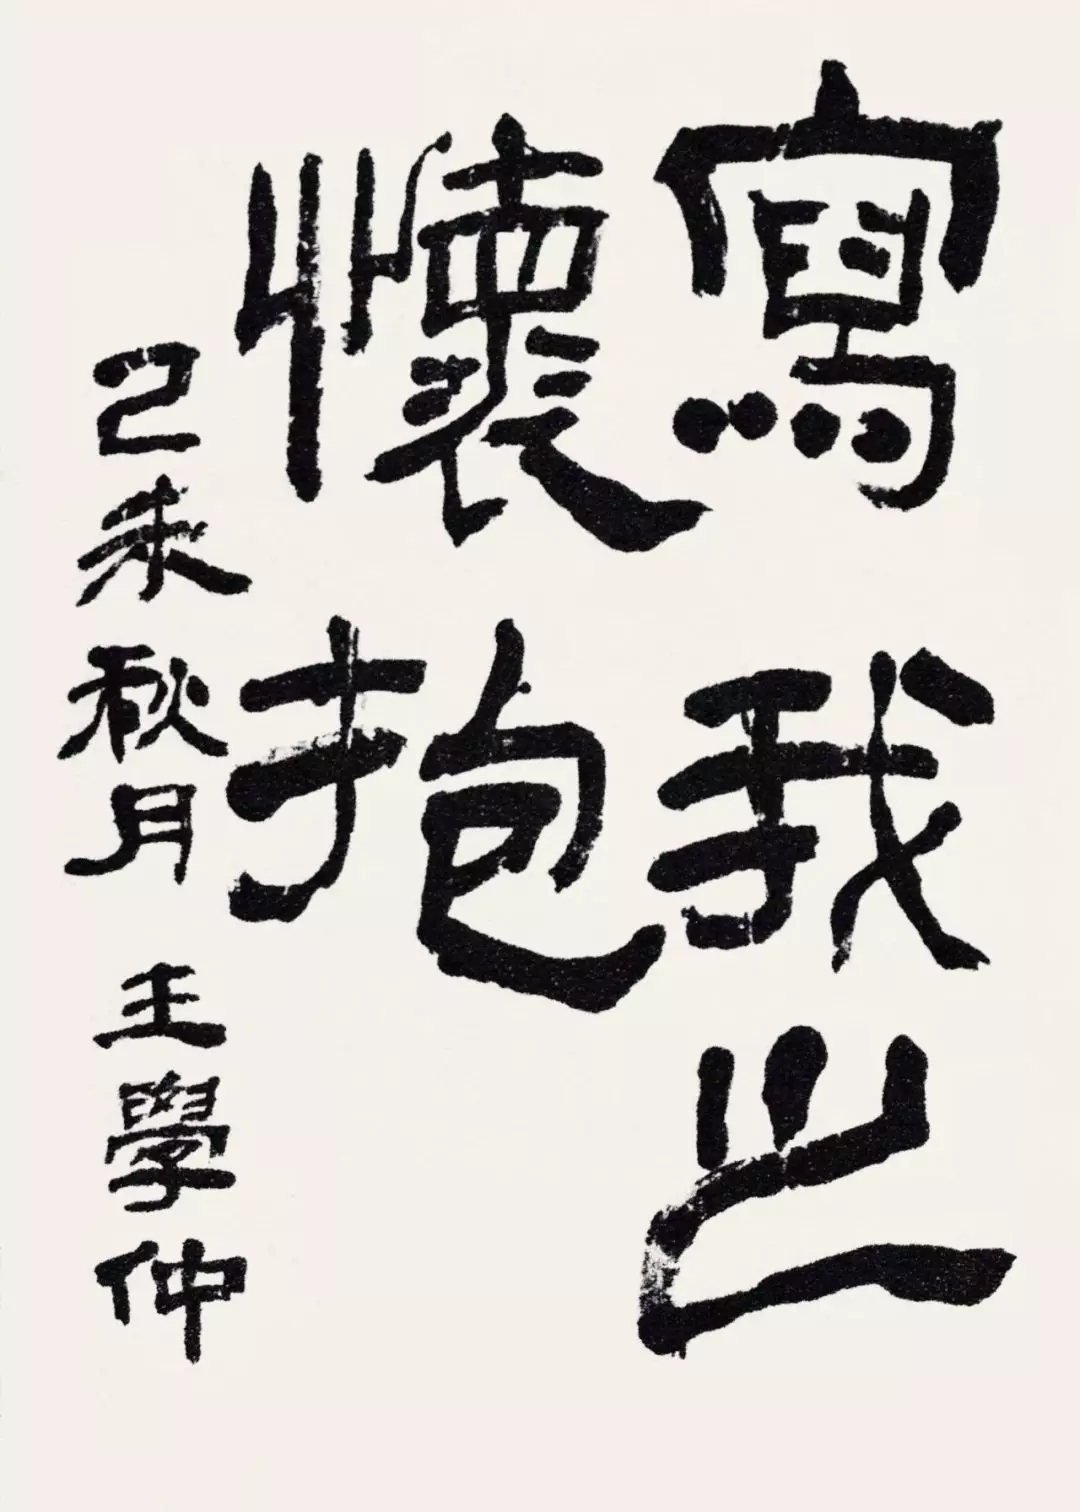 寫我之
懷抱
己未秋月王學仲